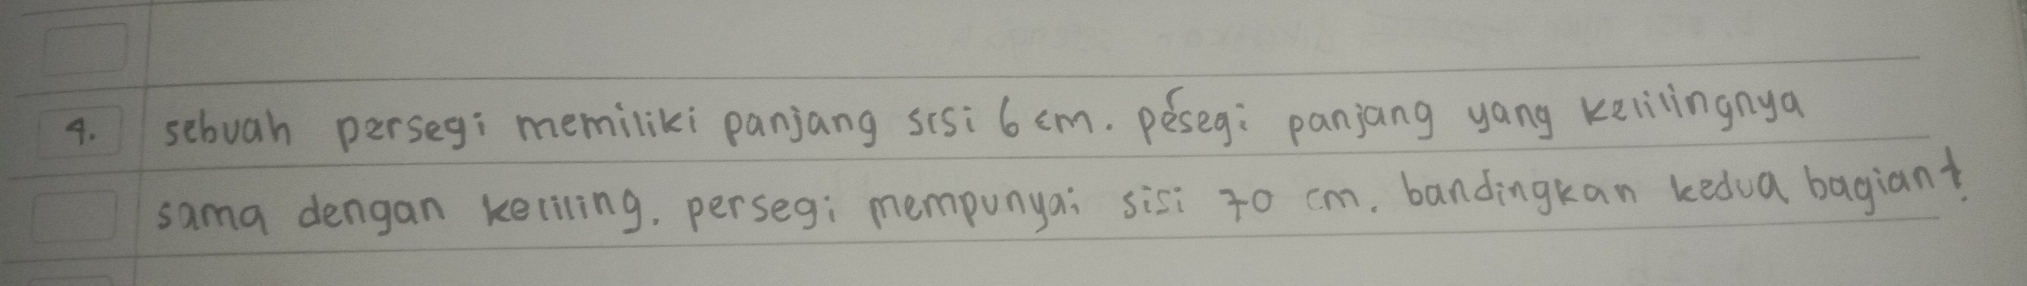 4. sebuah persegi memiliki panjang sisi 6 cm. pesegi panjang yang kelilingnya
sama dengan keliling. persegi mempunyai sisi 70 cm. bandingkan kedua bagian t.